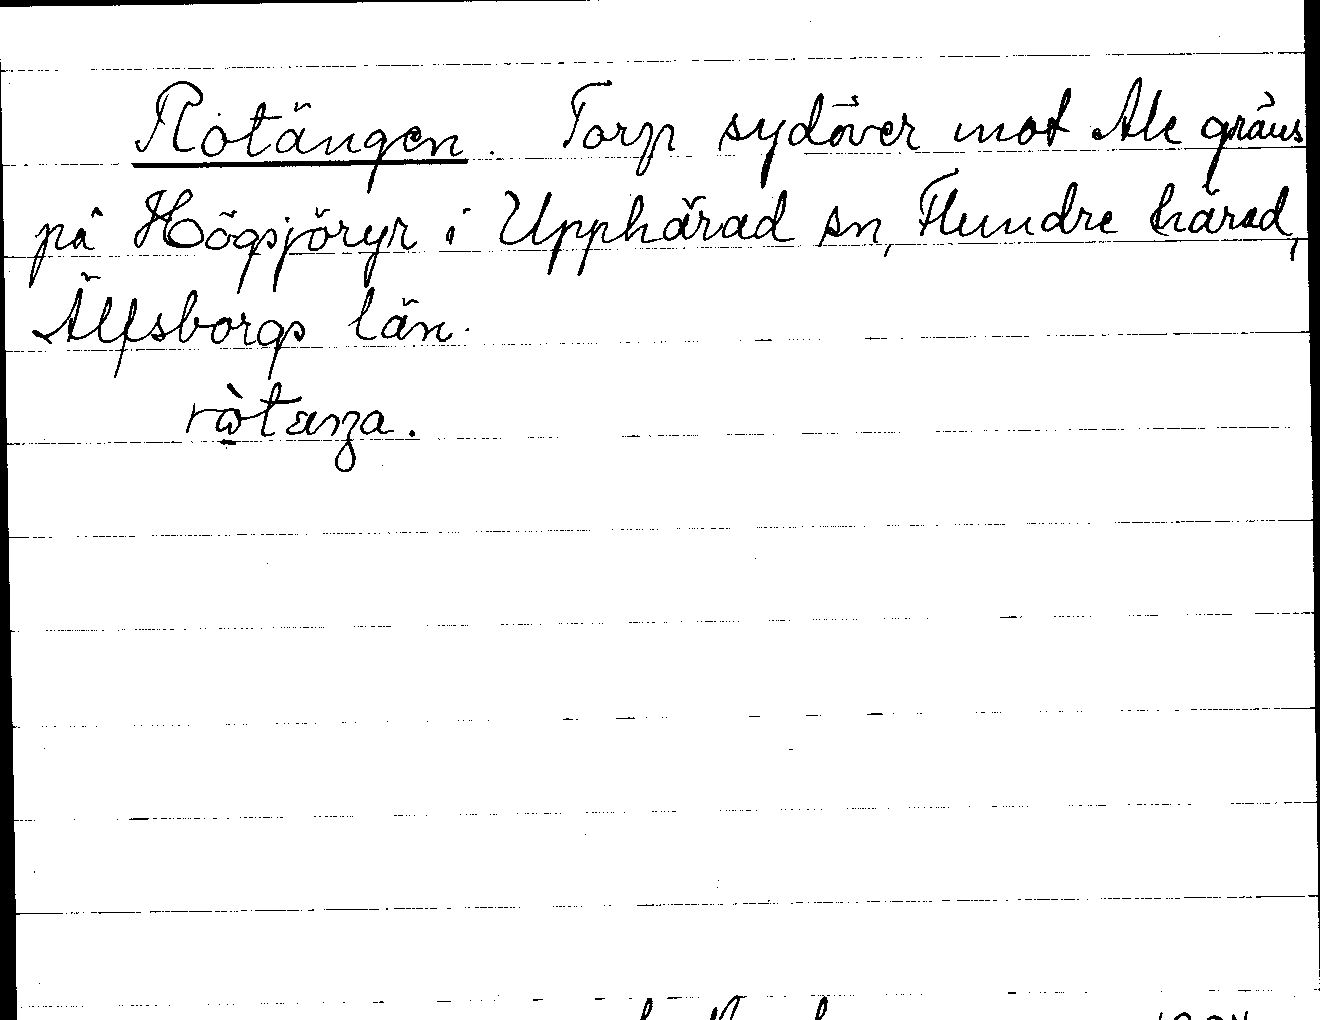 Rotängen. Torp sydöver mot Ale gräns
på Högsjöryr i Upphärad sn, Flundre härad,
Älfsborgs län.